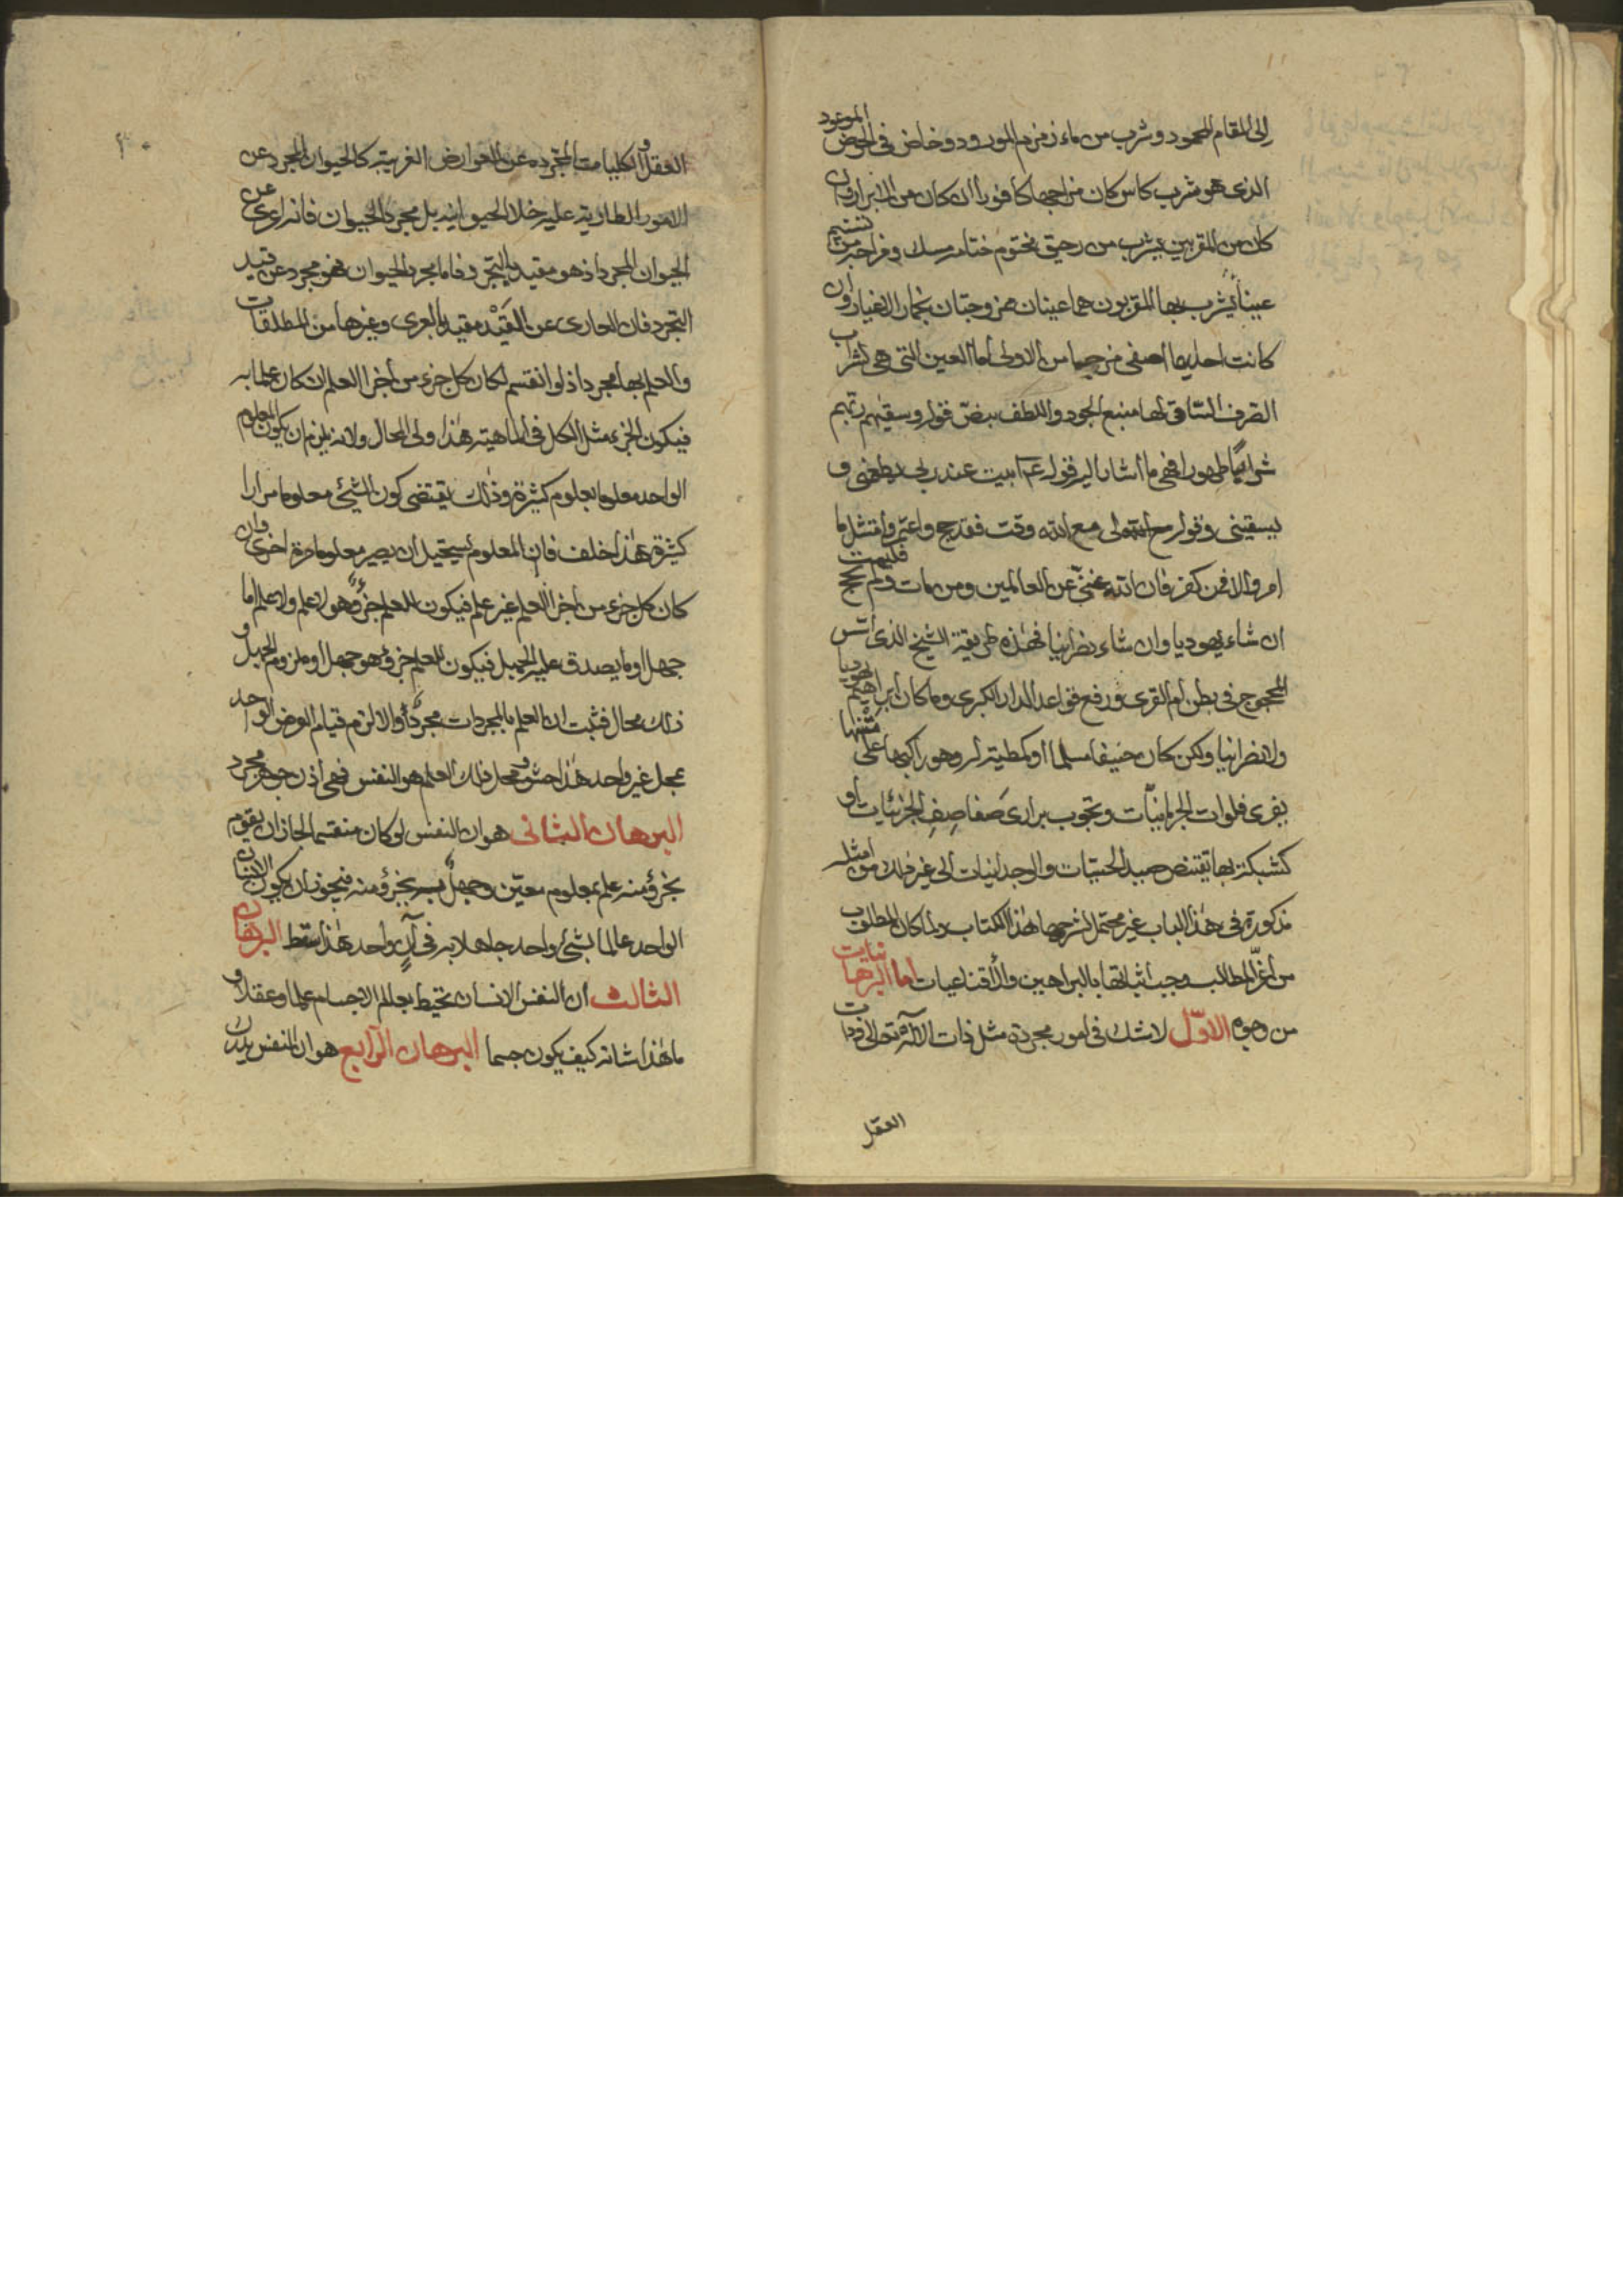 إلى المقام المحمود وشرب من ماء زمزم المورود وخاض في الحوض الموعود
الذي هو شرب كاس كان مزاجها كافورا ان كان من الابرار وان
كان من المقربين يشرب من رحيق مختوم ختامه مسك ومزاجه من تسنيم
عينا يشرب بها المقربون هما عينان ممزوجتان بخمار الاغيار وان
كانت احديهما اصفى مزجا من الاولى اما العين التي هي لشراب
الصرف الساقي لها منبع الجود واللطف بنص قوله وسقيهم ربهم
شرابا طهورا فهي ما أشار اليه قوله عم ابيت عند ربي يطعمني و
يسقيني وقوله لي مع الله وقت فقد حج واعتمر وامتثل ما
امر والا فمن كفر فان الله غني عن العالمين ومن مات ولم يحج فليمت
ان شاء يهوديا وان شاء نصرانيا فهذه طريقة الشيخ الذي اسس
المحجوج في بطن ام القرى ورفع قواعد الدار الكبرى وما كان ابراهيم يهوديا
ولا نصرانيا ولكن كان حنيفا مسلما او كمطية له وهو راكبها على متنها
يفري فلوات الجرمانيات وتجوب براري صفاصف الجزئيات او
كشبكة بها تقتنص صيد الحسيات والوجدانيات الى غير ذلك من امثله
مذكورة في هذا الباب غير محتمل لشرحها هذا الكتاب ولما كان المطلوب
من اعز المطالب وجب اثباتها بالبراهين والاقناعيات اما البرهانيات
من وجوه الاول لا شك في امور مجردة مثل ذات الاله تعالى وذات
العقل
العقل والكليات المجرده عن العوارض الغريبة كالحيوان المجرد عن
الامور الطارية عليه خلا الحيوانيه بل مجرد الحيوان فانه اعرى عن
الحيوان المجرد اذ هو مقيد بالتجرد فاما مجرد الحيوان فهو مجرد عن قيد
التجرد فان العاري عن القيد مقيد بالعرى وغيرها من المطلقات
والعلم بها مجرد اذ لو انقسم لكان كل جزء من اجزا العلم ان كان علما به
فيكون الجزء مثل الكل في الماهية هذا ولى المحال ولانه يلزم ان يكون المعلوم
الواحد معلوما بعلوم كثيرة وذلك يقتضي كون الشئ معلوما مرارا
كثيرة هذا خلف فان المعلوم يستحيل ان يصير معلوما مرة اخرى وان
كان كل جزء من اجزا العلم غير علم فيكون للعلم جزؤ هو لا علم ولا علم اما
جهل او ما يصدق عليه الجهل فيكون للعلم جزؤ هو جهل او ملزوم الجهل و
ذلك محال فثبت ان العلم بالمجردات مجرد والا لزم قيام العرض الواحد
بمحل غير واحد هذا حشو ومحل ذلك العلم هو النفس فهي اذن جوهر مجرد
البرهان الثاني هو ان النفس لو كان منقسما لجاز ان يقوم
بجزؤ منه علم بمعلوم معين وجهل به بجزؤ منه فيجوز ان يكون الانسان
الواحد عالما بشئ واحد جاهلا به في آن واحد هذا سقط البرهان
الثالث ان النفس الانسان تحيط بعالم الاجسام علما وعقلا و
ما هذا شانه كيف يكون جسما البرهان الرابع هو ان النفس يدرك